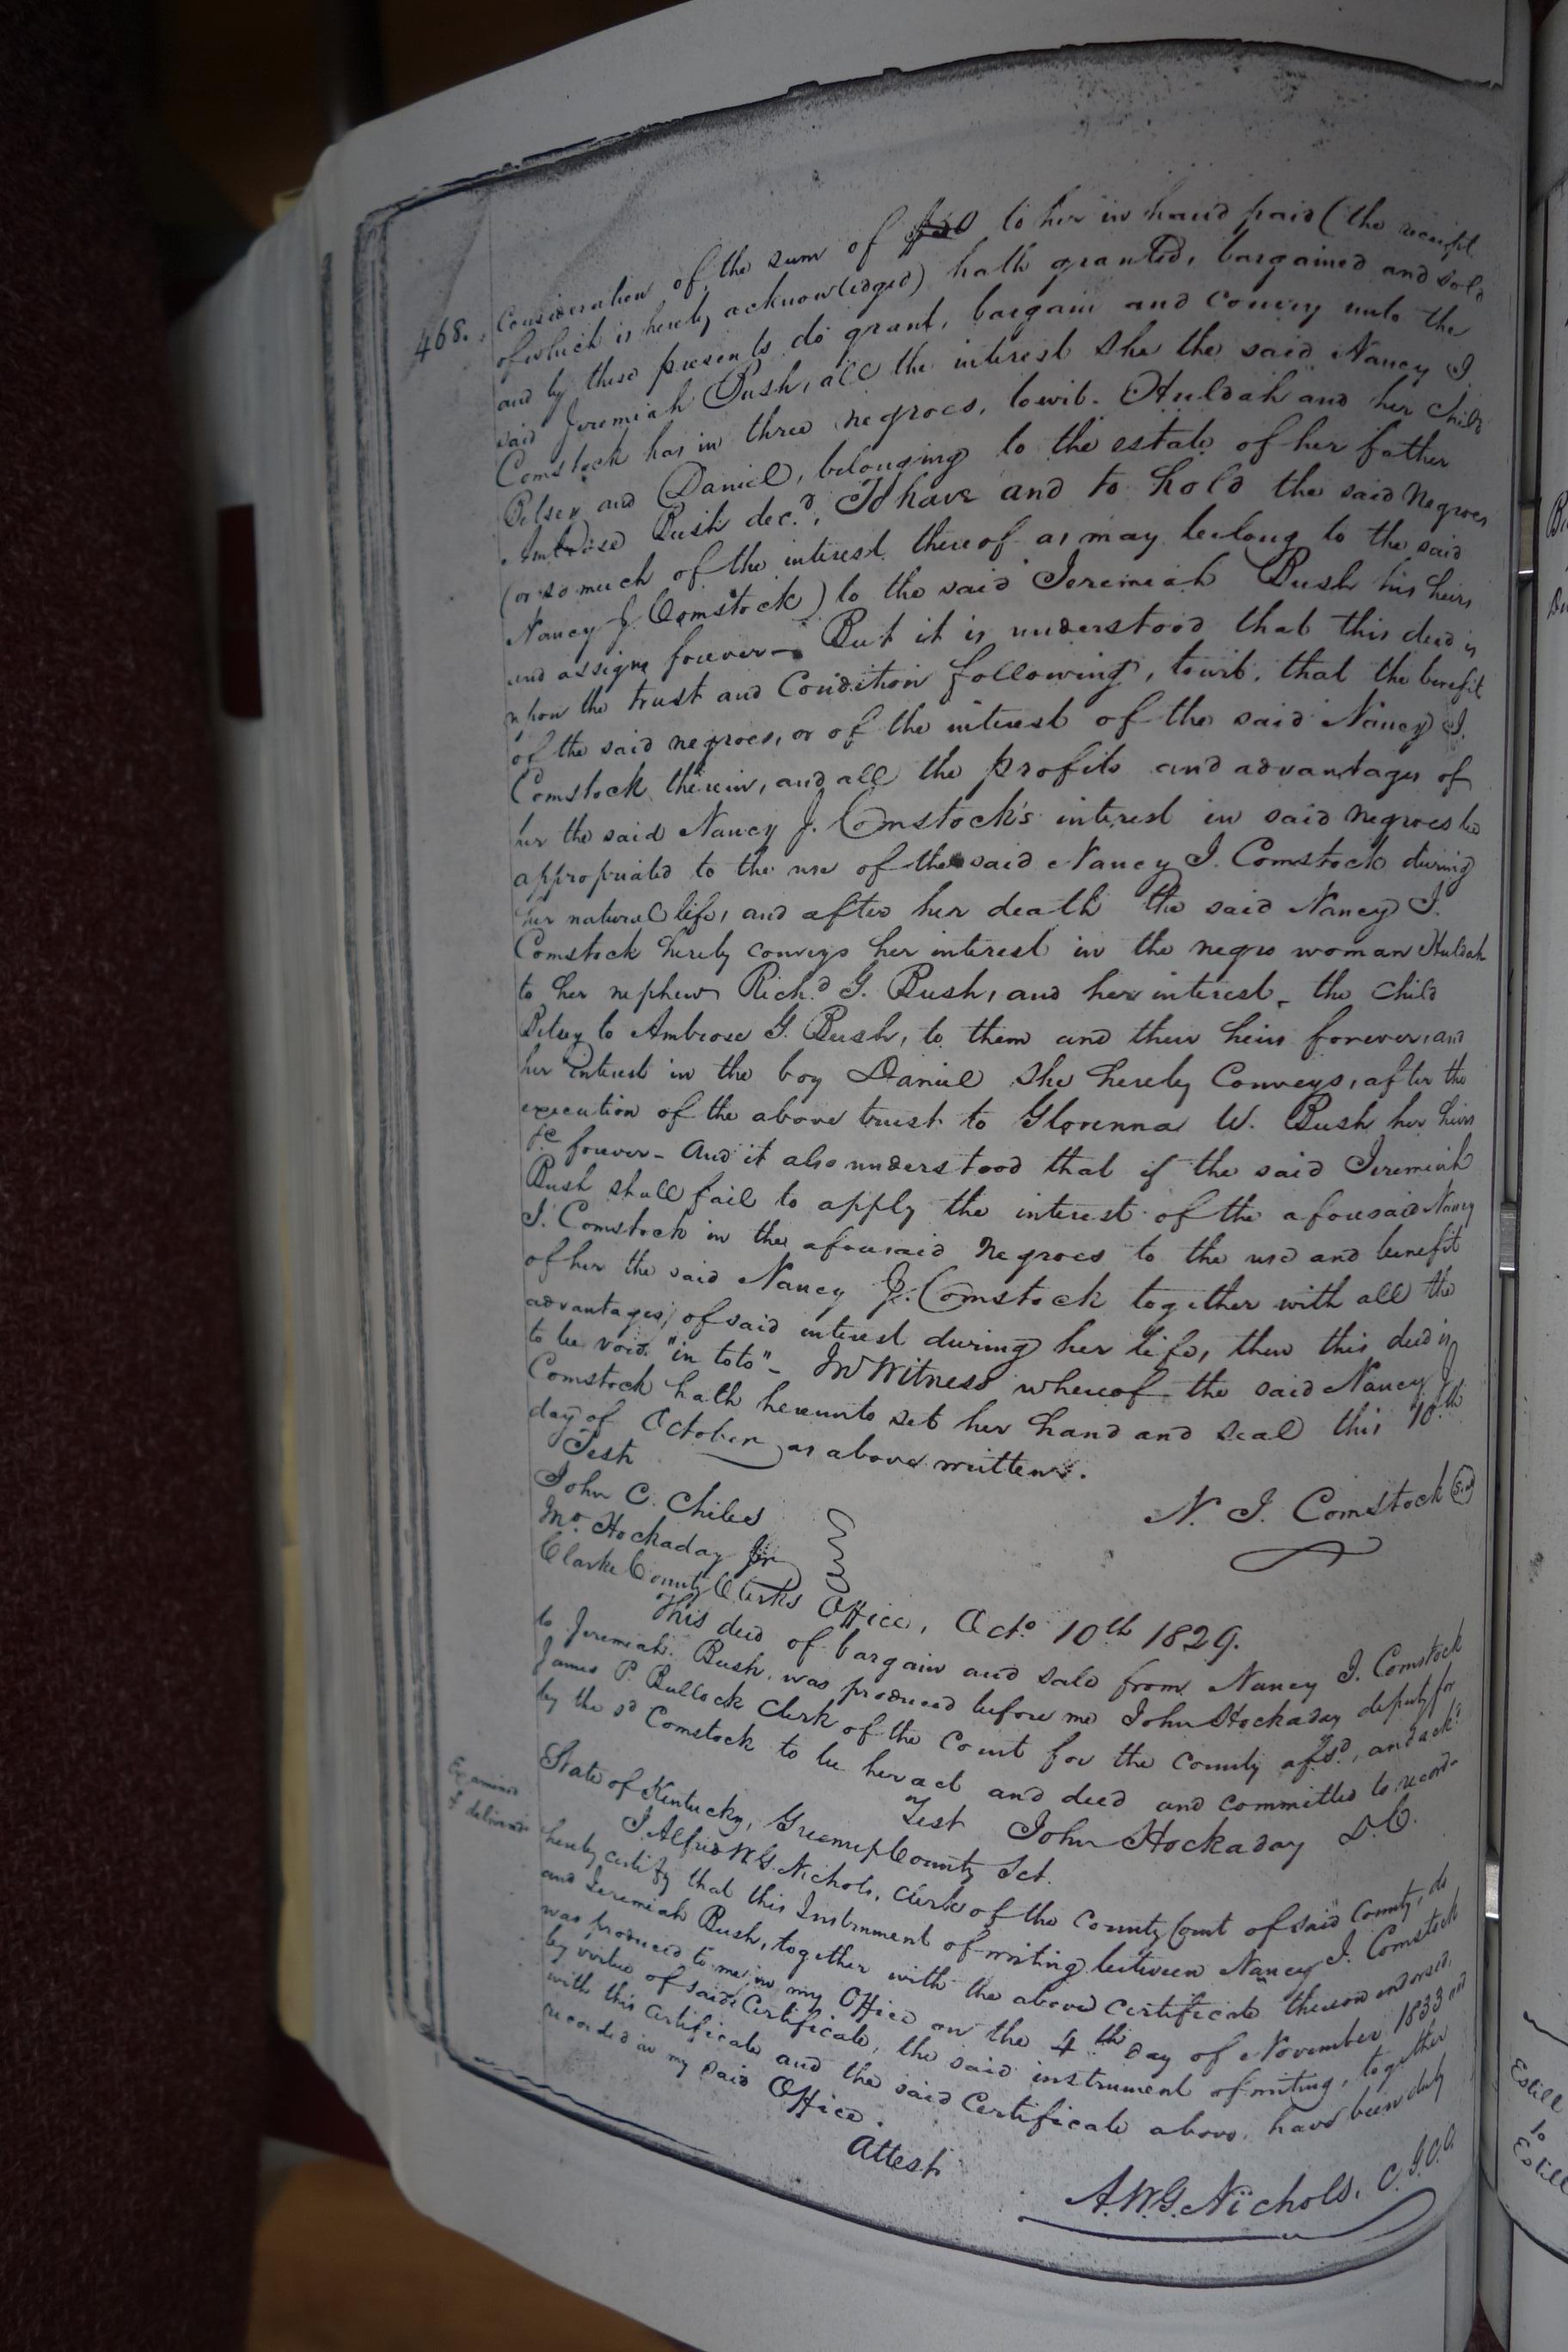 468.
Consideration of the sum of $50 to her in hand paid (the receipt
of which is hereby acknowledged) hath granted, bargained and sold
and by these presents do grant, bargain and convey unto the
said Jeremiah Bush, all the interest she the said Nancy J.
Comstock has in three negroes, towit. Huldah and her child
Betsey and Daniel, belonging to the estate of her father
Ambrose Bush dec.d, To have and to hold the said negroes
(or so much of the interest thereof as may belong to the said
Nancy J. Comstock) to the said Jeremiah Bush his heirs
and assigns forever - But it is understood that this deed is
upon the trust and Condition following, towit, that the benefit
of the said negroes, or of the interest of the said Nancy J.
Comstock therein, and all the profits and advantages of
her the said Nancy J. Comstock's interest in said negroes be
appropriated to the use of the said Nancy J. Comstock during
her natural life, and after her death the said Nancy J.
Comstock hereby conveys her interest in the negro woman Huldah
to her nephew Rich.d G. Bush, and her interest - the child
Betsey to Ambrose G. Bush, to them and their heirs forever, and
her interest in the boy Daniel she hereby Conveys, after the
execution of the above trust to Glorenna W. Bush her heirs
&c forever - And it also understood that if the said Jeremiah
Bush shall fail to apply the interest of the aforesaid Nancy
J. Comstock in the aforesaid negroes to the use and benefit
of her the said Nancy J. Comstock together with all the
advantages, of said interest during her life, then this deed is
to be void "in toto" - In Witness whereof the said Nancy J
Comstock hath hereunto set her hand and seal this 10th
day of October as above written.
Test
John C. Chiles
N. J. Comstock
Jno. Hockaday Jr
Clarke County Clerks Office, Octo. 10th 1829.
This deed of bargain and sale from Nancy J. Comstock
to Jeremiah Bush, was produced before me John Hockaday deputy for
James P. Bullock Clerk of the Court for the County afsd., and ackd
by the sd Comstock to be her act and deed and committed to record -
Test John Hockaday D.C.
Examined
& delivered
State of Kentucky, Greenup County Sct.
I. Alfred W.G. Nichols, Clerk of the County Court of said County, do
hereby certify that this Instrument of writing between Nancy J. Comstock
and Jeremiah Bush, together with the above certificate thereon endorsed,
was produced to me in my Office on the 4th day of November 1833 and
by virtue of said Certificate, the said instrument of writing, together
with this Certificate and the said Certificate above, have been duly
recorded in my said Office.
Attest
A.W.G. Nichols, C.G.C.C.
Estill
to
Estill